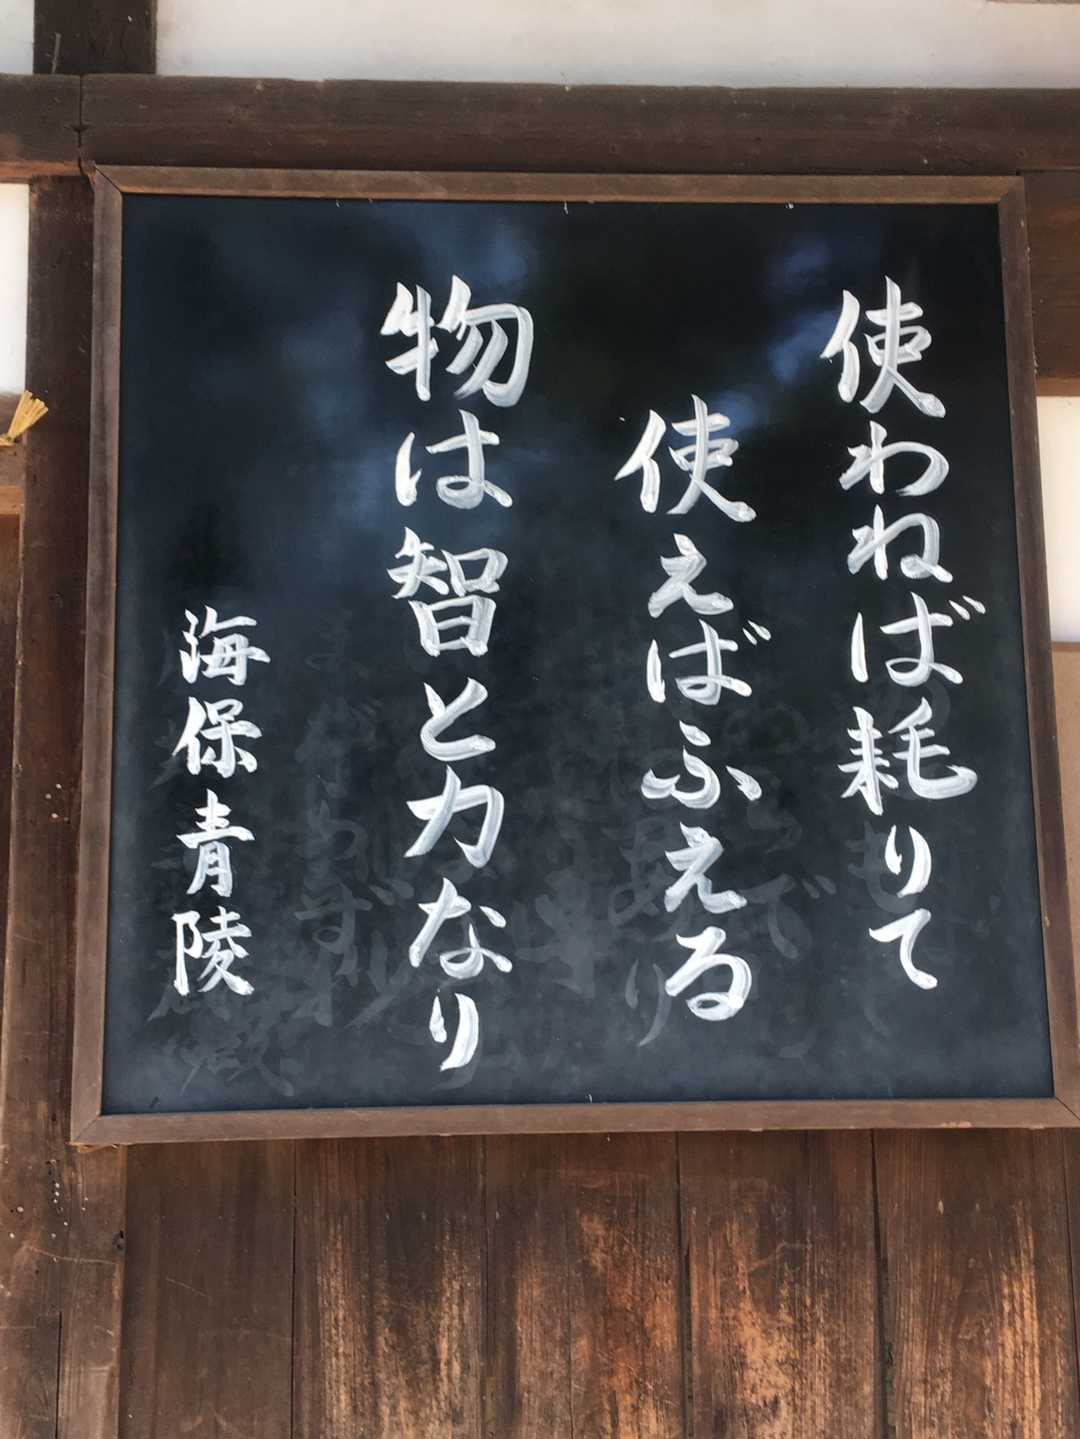 使わねば耗りて
使えばふえる
物は智と力なり
海保青陵